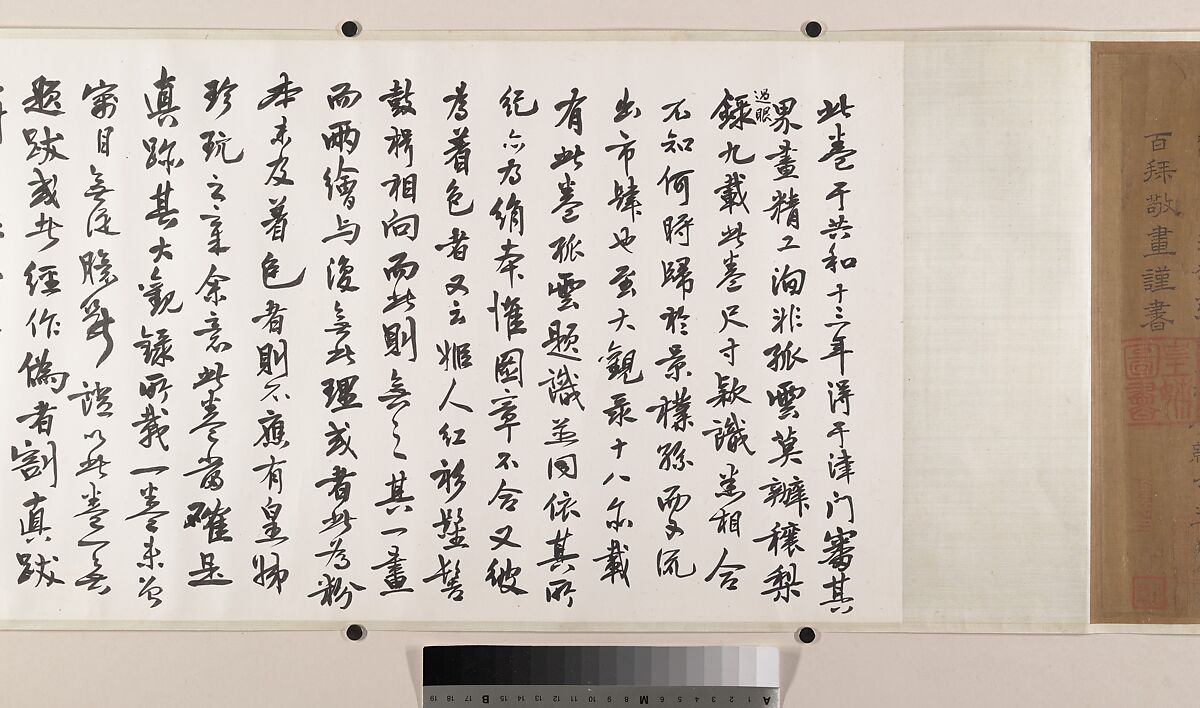 百拜敬畫謹書
皇姊圖書
此卷于共和十三年得于津门審其
界畫精工洵非孤雲莫辦穰梨
過眼
錄九載此卷尺寸欵識悉相合
不知何時歸於景樸孫而又流
出市肆也至大觀录十八亦載
有此卷孤雲題識並同依其所
紀亦为绢本惟圖章不合又彼
为着色者又云姬人红衫髽髻
鼓枻相向而此則無之其一畫
而兩繪与復無此理或者此为粉
本未及着色者則不應有皇姊
珍玩之章余意此卷當確是
真跡其大觀録所載一卷未曾
寓目無從臆斷證以此卷無
題跋或者經作偽者割真跋